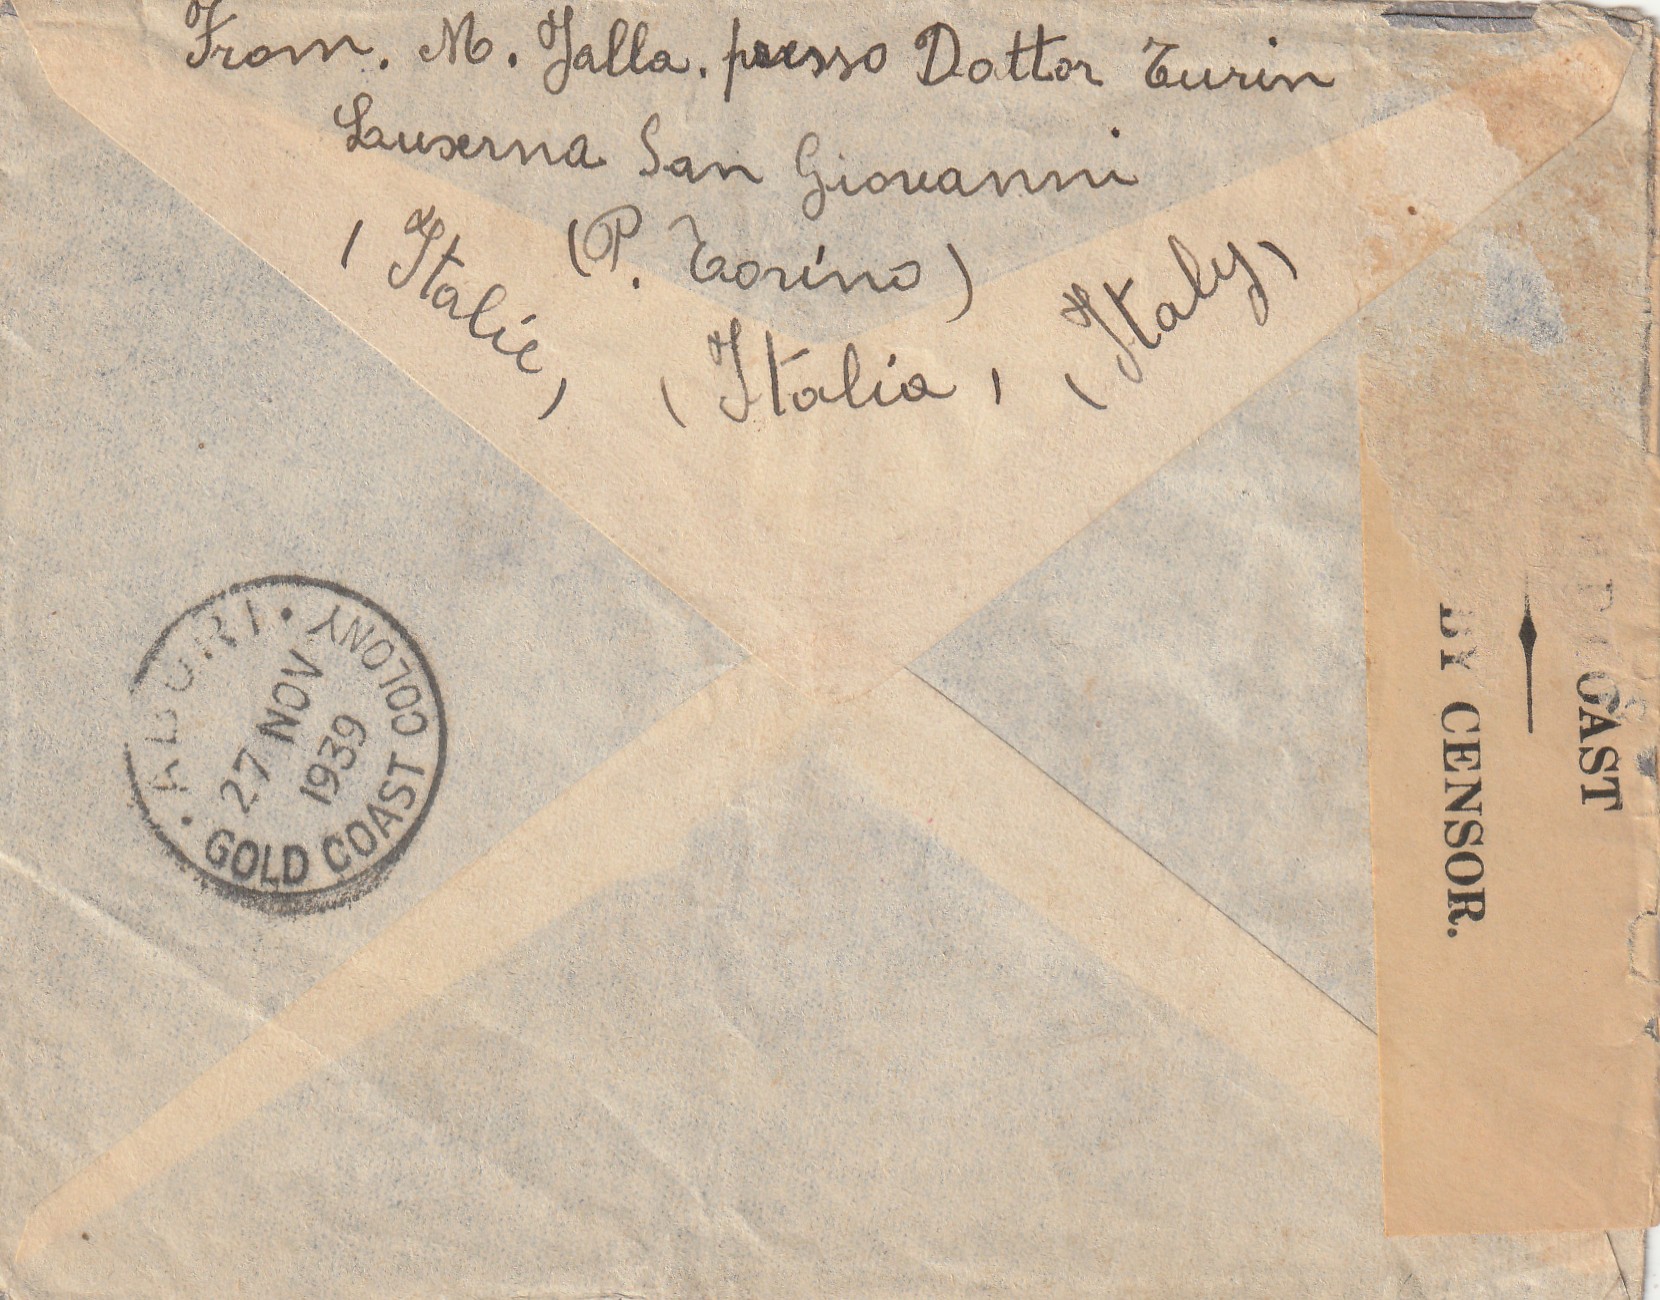 From. M. Jalla. presso Dottor Turin
Luserna San Giovanni
(P. Torino)
(Italie) (Italia) (Italy)
ABURI
27 NOV
1939
GOLD COAST COLONY
COAST
BY CENSOR.